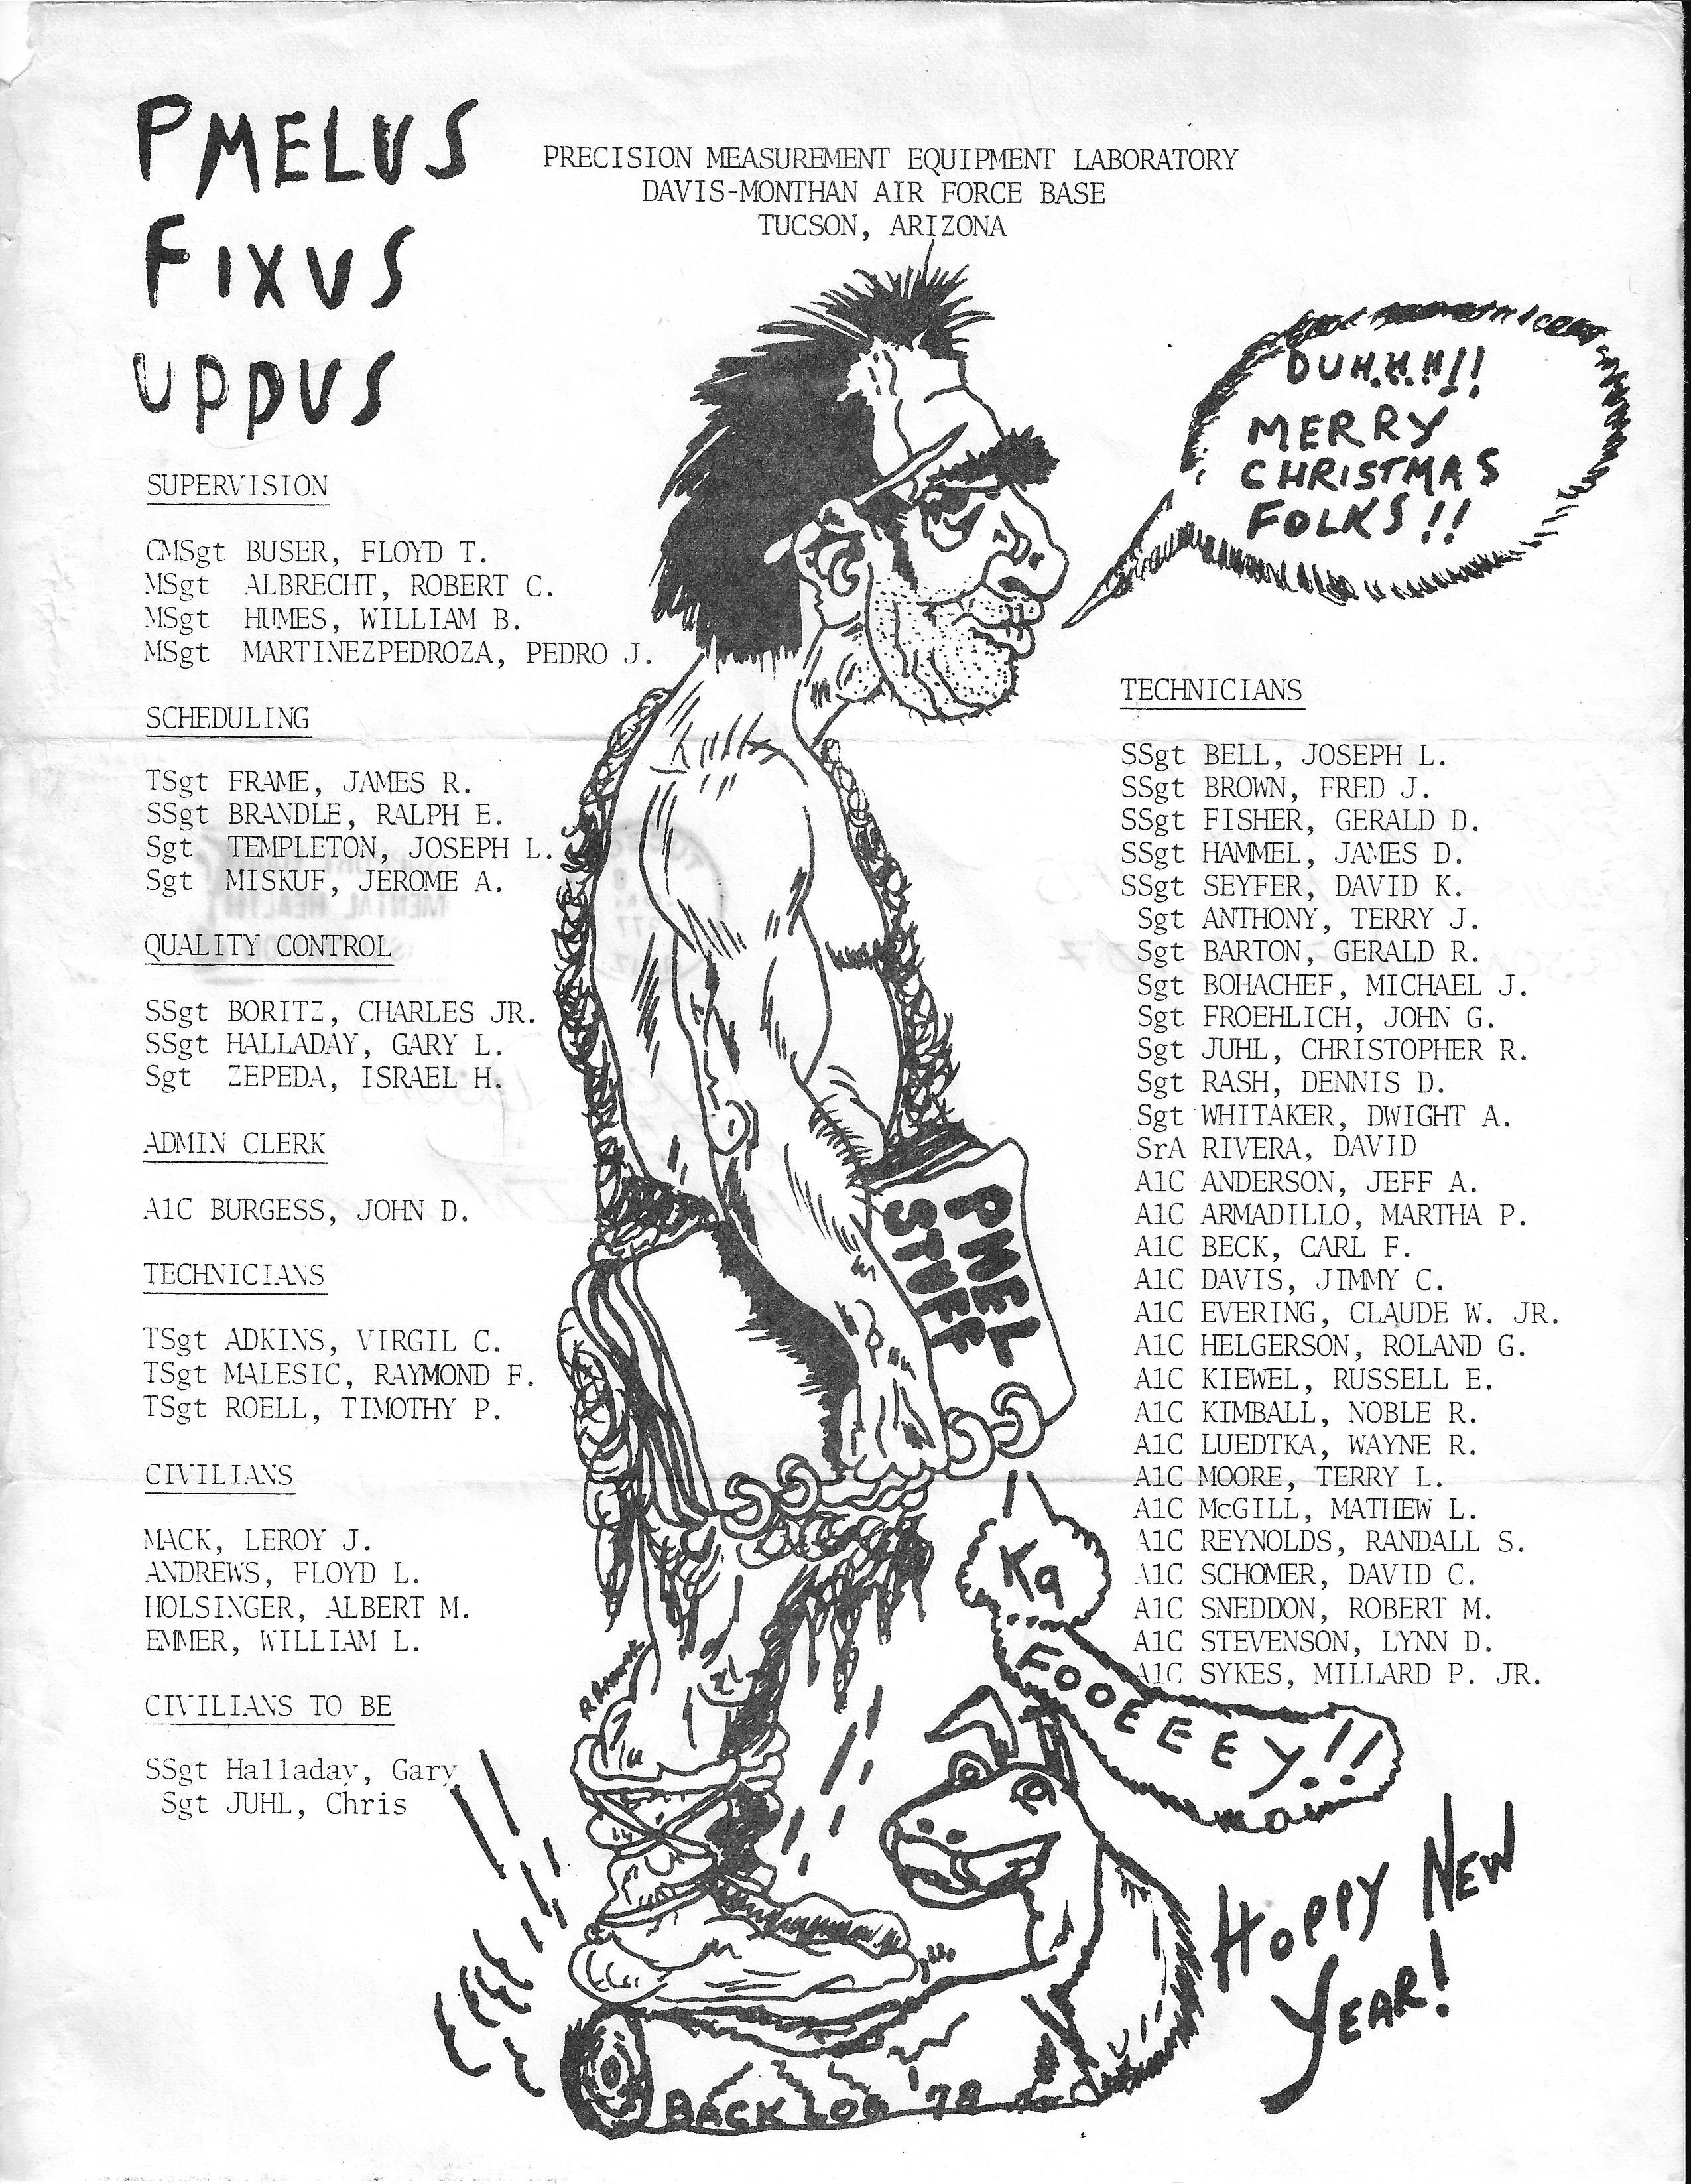 PMELUS
FIXUS
UPPUS
PRECISION MEASUREMENT EQUIPMENT LABORATORY
DAVIS-MONTHAN AIR FORCE BASE
TUCSON, ARIZONA
DUH.H.H!!
MERRY
CHRISTMAS
FOLKS!!
SUPERVISION
CMSgt BUSER, FLOYD T.
MSgt ALBRECHT, ROBERT C.
MSgt HUMES, WILLIAM B.
MSgt MARTINEZPEDROZA, PEDRO J.
SCHEDULING
TSgt FRAME, JAMES R.
SSgt BRANDLE, RALPH E.
Sgt TEMPLETON, JOSEPH L.
Sgt MISKUF, JEROME A.
QUALITY CONTROL
SSgt BORITZ, CHARLES JR.
SSgt HALLADAY, GARY L.
Sgt ZEPEDA, ISRAEL H.
ADMIN CLERK
A1C BURGESS, JOHN D.
TECHNICIANS
TSgt ADKINS, VIRGIL C.
TSgt MALESIC, RAYMOND F.
TSgt ROELL, TIMOTHY P.
CIVILIANS
MACK, LEROY J.
ANDREWS, FLOYD L.
HOLSINGER, ALBERT M.
EMMER, WILLIAM L.
CIVILIANS TO BE
SSgt Halladay, Gary
Sgt JUHL, Chris
TECHNICIANS
SSgt BELL, JOSEPH L.
SSgt BROWN, FRED J.
SSgt FISHER, GERALD D.
SSgt HAMMEL, JAMES D.
SSgt SEYFER, DAVID K.
Sgt ANTHONY, TERRY J.
Sgt BARTON, GERALD R.
Sgt BOHACHEF, MICHAEL J.
Sgt FROEHLICH, JOHN G.
Sgt JUHL, CHRISTOPHER R.
Sgt RASH, DENNIS D.
Sgt WHITAKER, DWIGHT A.
SrA RIVERA, DAVID
A1C ANDERSON, JEFF A.
A1C ARMADILLO, MARTHA P.
A1C BECK, CARL F.
A1C DAVIS, JIMMY C.
A1C EVERING, CLAUDE W. JR.
A1C HELGERSON, ROLAND G.
A1C KIEWEL, RUSSELL E.
A1C KIMBALL, NOBLE R.
A1C LUEDTKA, WAYNE R.
A1C MOORE, TERRY L.
A1C McGILL, MATHEW L.
A1C REYNOLDS, RANDALL S.
A1C SCHOMER, DAVID C.
A1C SNEDDON, ROBERT M.
A1C STEVENSON, LYNN D.
A1C SYKES, MILLARD P. JR.
PMEL
STUFF
Ka
FOOEEEY!!
HOPPY NEW
YEAR!
BACK LOG '78